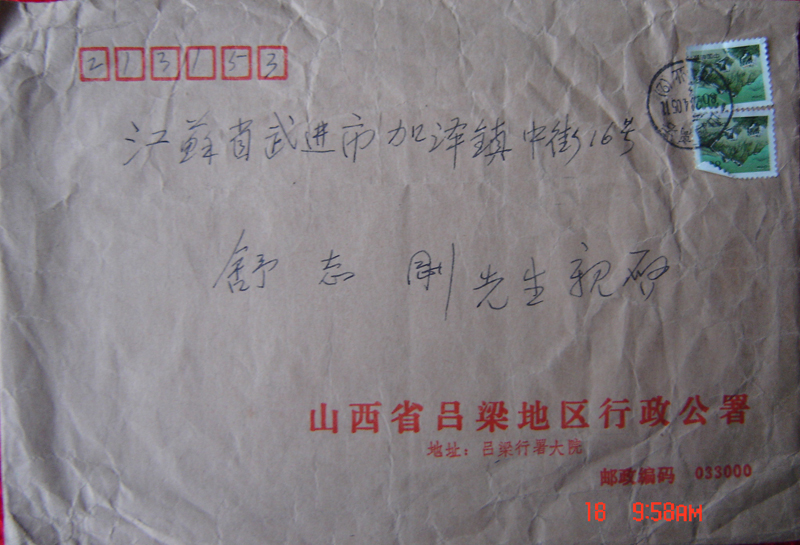 213153
江蘇省武进市加泽鎮中街16号
舒志刚先生親啓
山西省吕梁地区行政公署
地址：吕梁行署大院
邮政编码 033000
18 9:58AM